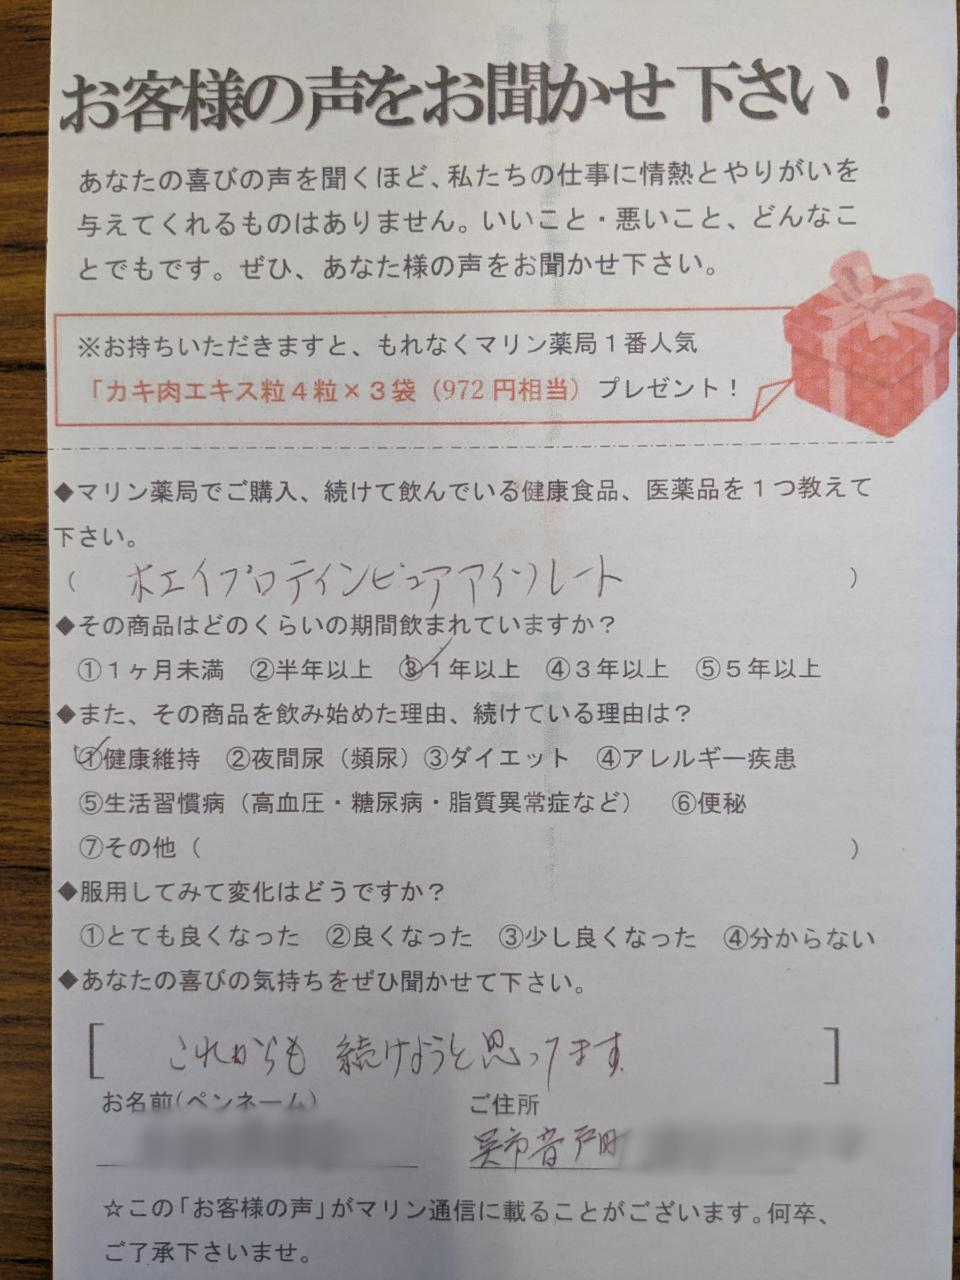 お客様の声をお聞かせ下さい！
あなたの喜びの声を聞くほど、私たちの仕事に情熱とやりがいを
与えてくれるものはありません。いいこと・悪いこと、どんなこ
とでもです。ぜひ、あなた様の声をお聞かせ下さい。
※お持ちいただきますと、もれなくマリン薬局１番人気
「カキ肉エキス粒４粒×３袋（972円相当）プレゼント！
◆マリン薬局でご購入、続けて飲んでいる健康食品、医薬品を１つ教えて
下さい。
（ ホエイプロテインピュアアイソレート ）
◆その商品はどのくらいの期間飲まれていますか？
①１ヶ月未満 ②半年以上 ③１年以上 ④３年以上 ⑤５年以上
◆また、その商品を飲み始めた理由、続けている理由は？
①健康維持 ②夜間尿（頻尿）③ダイエット ④アレルギー疾患
⑤生活習慣病（高血圧・糖尿病・脂質異常症など） ⑥便秘
⑦その他（ ）
◆服用してみて変化はどうですか？
①とても良くなった ②良くなった ③少し良くなった ④分からない
◆あなたの喜びの気持ちをぜひ聞かせて下さい。
［ これからも 続けようと思ってます。 ］
お名前(ペンネーム) ご住所
呉市音戸町
☆この「お客様の声」がマリン通信に載ることがございます。何卒、
ご了承下さいませ。